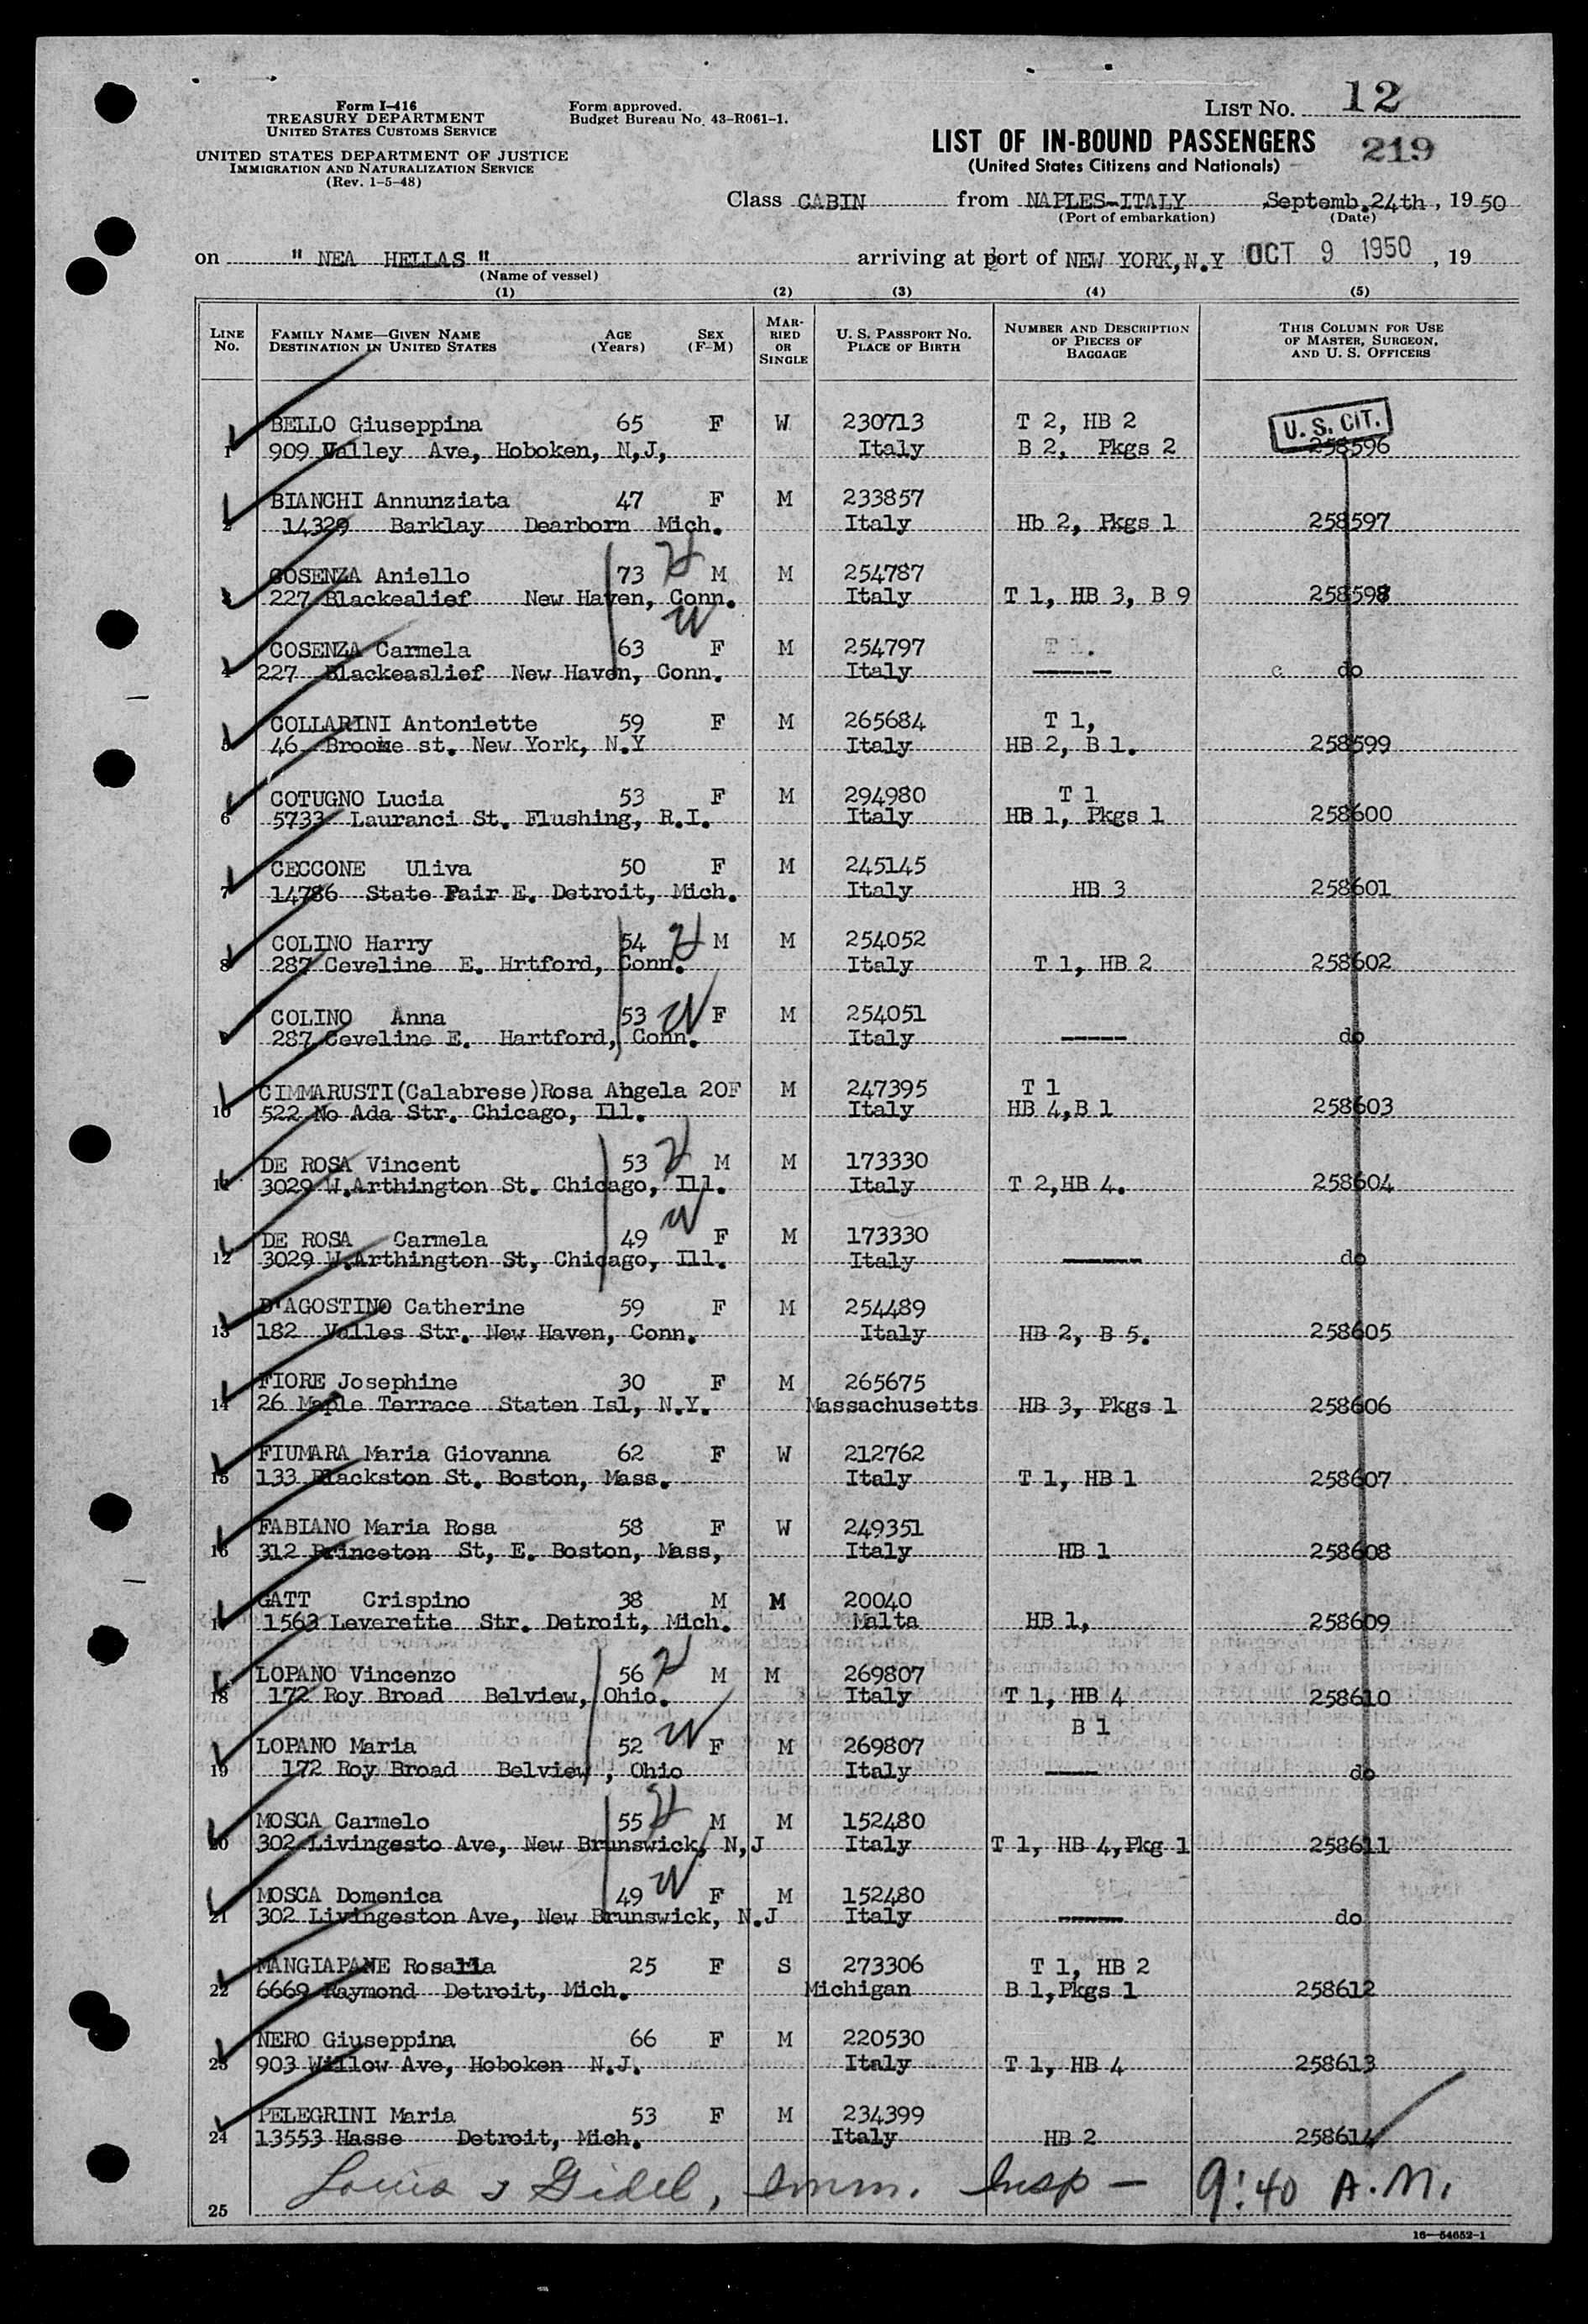 Form I-416
TREASURY DEPARTMENT
UNITED STATES CUSTOMS SERVICE
UNITED STATES DEPARTMENT OF JUSTICE
IMMIGRATION AND NATURALIZATION SERVICE
(Rev. 1-5-48)
Form approved.
Budget Bureau No. 43-R061-1.
LIST NO. 12
LIST OF IN-BOUND PASSENGERS 219
(United States Citizens and Nationals)
Class CABIN from NAPLES-ITALY , Septemb.24th, 1950
(Port of embarkation) (Date)
on " NEA HELLAS " arriving at port of NEW YORK,N.Y OCT 9 1950, 19
(Name of vessel)
(1) (2) (3) (4) (5)
LINE NO. FAMILY NAME—GIVEN NAME DESTINATION IN UNITED STATES AGE (Years) SEX (F-M) MARRIED OR SINGLE U. S. PASSPORT NO. PLACE OF BIRTH NUMBER AND DESCRIPTION OF PIECES OF BAGGAGE THIS COLUMN FOR USE OF MASTER, SURGEON, AND U. S. OFFICERS
BELLO Giuseppina 65 F W 230713 T 2, HB 2 U. S. CIT.
1 909 Valley Ave, Hoboken, N,J, Italy B 2, Pkgs 2 258596
BIANCHI Annunziata 47 F M 233857
2 14329 Barklay Dearborn Mich. Italy Hb 2, Pkgs 1 258597
COSENZA Aniello 73 H M M 254787
3 227 Blackealief New Haven, Conn. Italy T 1, HB 3, B 9 258598
COSENZA Carmela 63 W F M 254797 T 1.
4 227 Blackeaslief New Haven, Conn. Italy ------ c do
COLLARINI Antoniette 59 F M 265684 T 1,
5 46 Broome st. New York, N.Y Italy HB 2, B 1. 258599
COTUGNO Lucia 53 F M 294980 T 1
6 5733 Lauranci St. Flushing, R.I. Italy HB 1, Pkgs 1 258600
CECCONE Uliva 50 F M 245145
7 14786 State Fair E. Detroit, Mich. Italy HB 3 258601
COLINO Harry 54 H M M 254052
8 287 Ceveline E. Hrtford, Conn. Italy T 1, HB 2 258602
COLINO Anna 53 W F M 254051
9 287 Ceveline E. Hartford, Conn. Italy ----- do
CIMMARUSTI(Calabrese)Rosa Angela 20F M 247395 T 1
10 522 No Ada Str. Chicago, Ill. Italy HB 4,B 1 258603
DE ROSA Vincent 53 H M M 173330
11 3029 W.Arthington St. Chicago, Ill. Italy T 2,HB 4. 258604
DE ROSA Carmela 49 W F M 173330
12 3029 W.Arthington St, Chicago, Ill. Italy ------ do
D'AGOSTINO Catherine 59 F M 254489
13 182 Valles Str. New Haven, Conn. Italy HB 2, B 5. 258605
FIORE Josephine 30 F M 265675
14 26 Maple Terrace Staten Isl, N.Y. Massachusetts HB 3, Pkgs 1 258606
FIUMARA Maria Giovanna 62 F W 212762
15 133 Blackston St. Boston, Mass. Italy T 1, HB 1 258607
FABIANO Maria Rosa 58 F W 249351
16 312 Princeton St, E. Boston, Mass, Italy HB 1 258608
GATT Crispino 38 M M 20040
17 1563 Leverette Str. Detroit, Mich. Malta HB 1, 258609
LOPANO Vincenzo 56 H M M 269807
18 172 Roy Broad Belview, Ohio. Italy T 1, HB 4 258610
LOPANO Maria 52 W F M 269807 B 1
19 172 Roy Broad Belview, Ohio Italy ---- do
MOSCA Carmelo 55 H M M 152480
20 302 Livingesto Ave, New Brunswick, N,J Italy T 1, HB 4,Pkg 1 258611
MOSCA Domenica 49 W F M 152480
21 302 Livingeston Ave, New Brunswick, N.J Italy ----- do
MANGIAPANE Rosalia 25 F S 273306 T 1, HB 2
22 6669 Raymond Detroit, Mich. Michigan B 1,Pkgs 1 258612
NERO Giuseppina 66 F M 220530
23 903 Willow Ave, Hoboken N.J. Italy T 1, HB 4 258613
PELEGRINI Maria 53 F M 234399
24 13553 Hasse Detroit, Mich. Italy HB 2 258614
25 Louis J Gidel, Imm. Insp — 9:40 A.M.
16—54652-1